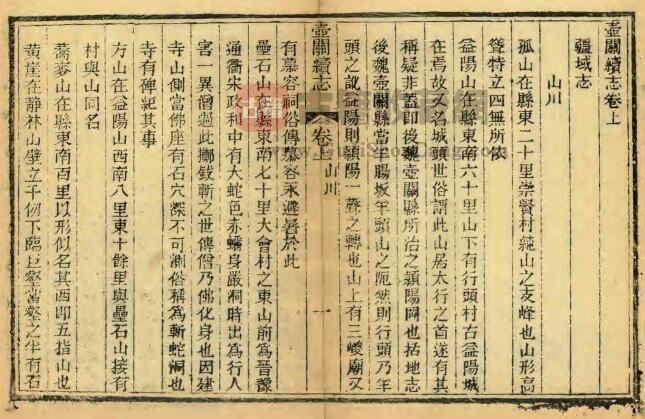 壺關續志卷上
疆域志
山川
孤山在縣東二十里崇賢村純山之支峰也山形高
聳特立四無所依
益陽山在縣東南六十里山下有行頭村古益陽城
在焉故又名城頭世俗謂此山居太行之首遂有其
稱疑非蓋即後魏壺關縣所治之潁陽岡也括地志
後魏壺關縣當羊腸坂羊頭山之阨然則行頭乃羊
頭之訛益陽則潁陽一聲之轉也山上有三嵕廟又
壺關續志 卷上 山川 一
有慕容祠俗傳慕容永避暑於此
疊石山在縣東南七十里大會村之東山前為晉豫
通衢宋政和中有大蛇色赤蠕身嚴洞時出為行人
害一異僧過此擲錢斬之世傳僧乃佛化身也因建
寺山側當佛座有石穴深不可測俗稱為斬蛇洞也
寺有碑紀其事
方山在益陽山西南八里東十餘里與疊石山接有
村與山同名
蕎麥山在縣東南百里以形似名其西即五指山也
黃崖在靜林山壁立千仞下臨巨壑當壑之半有石